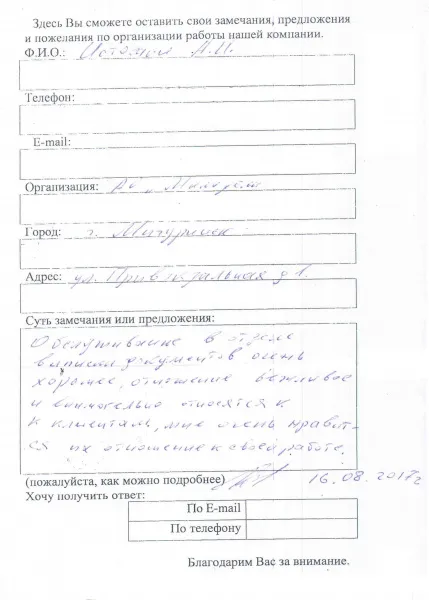 Здесь Вы сможете оставить свои замечания, предложения
и пожелания по организации работы нашей компании.
Ф.И.О.: А.И.
Телефон:
E-mail:
Организация:
Город: г. Мичуринск
Адрес: ул. Привокзальная д 1.
Суть замечания или предложения:
Обслуживание в отделе
выписки документов очень
хорошее, отношение вежливое
и внимательно относятся к
к клиентам, мне очень нравит-
ся их отношение к своей работе.
(пожалуйста, как можно подробнее) 16.08.2017г
Хочу получить ответ:
По E-mail
По телефону
Благодарим Вас за внимание.